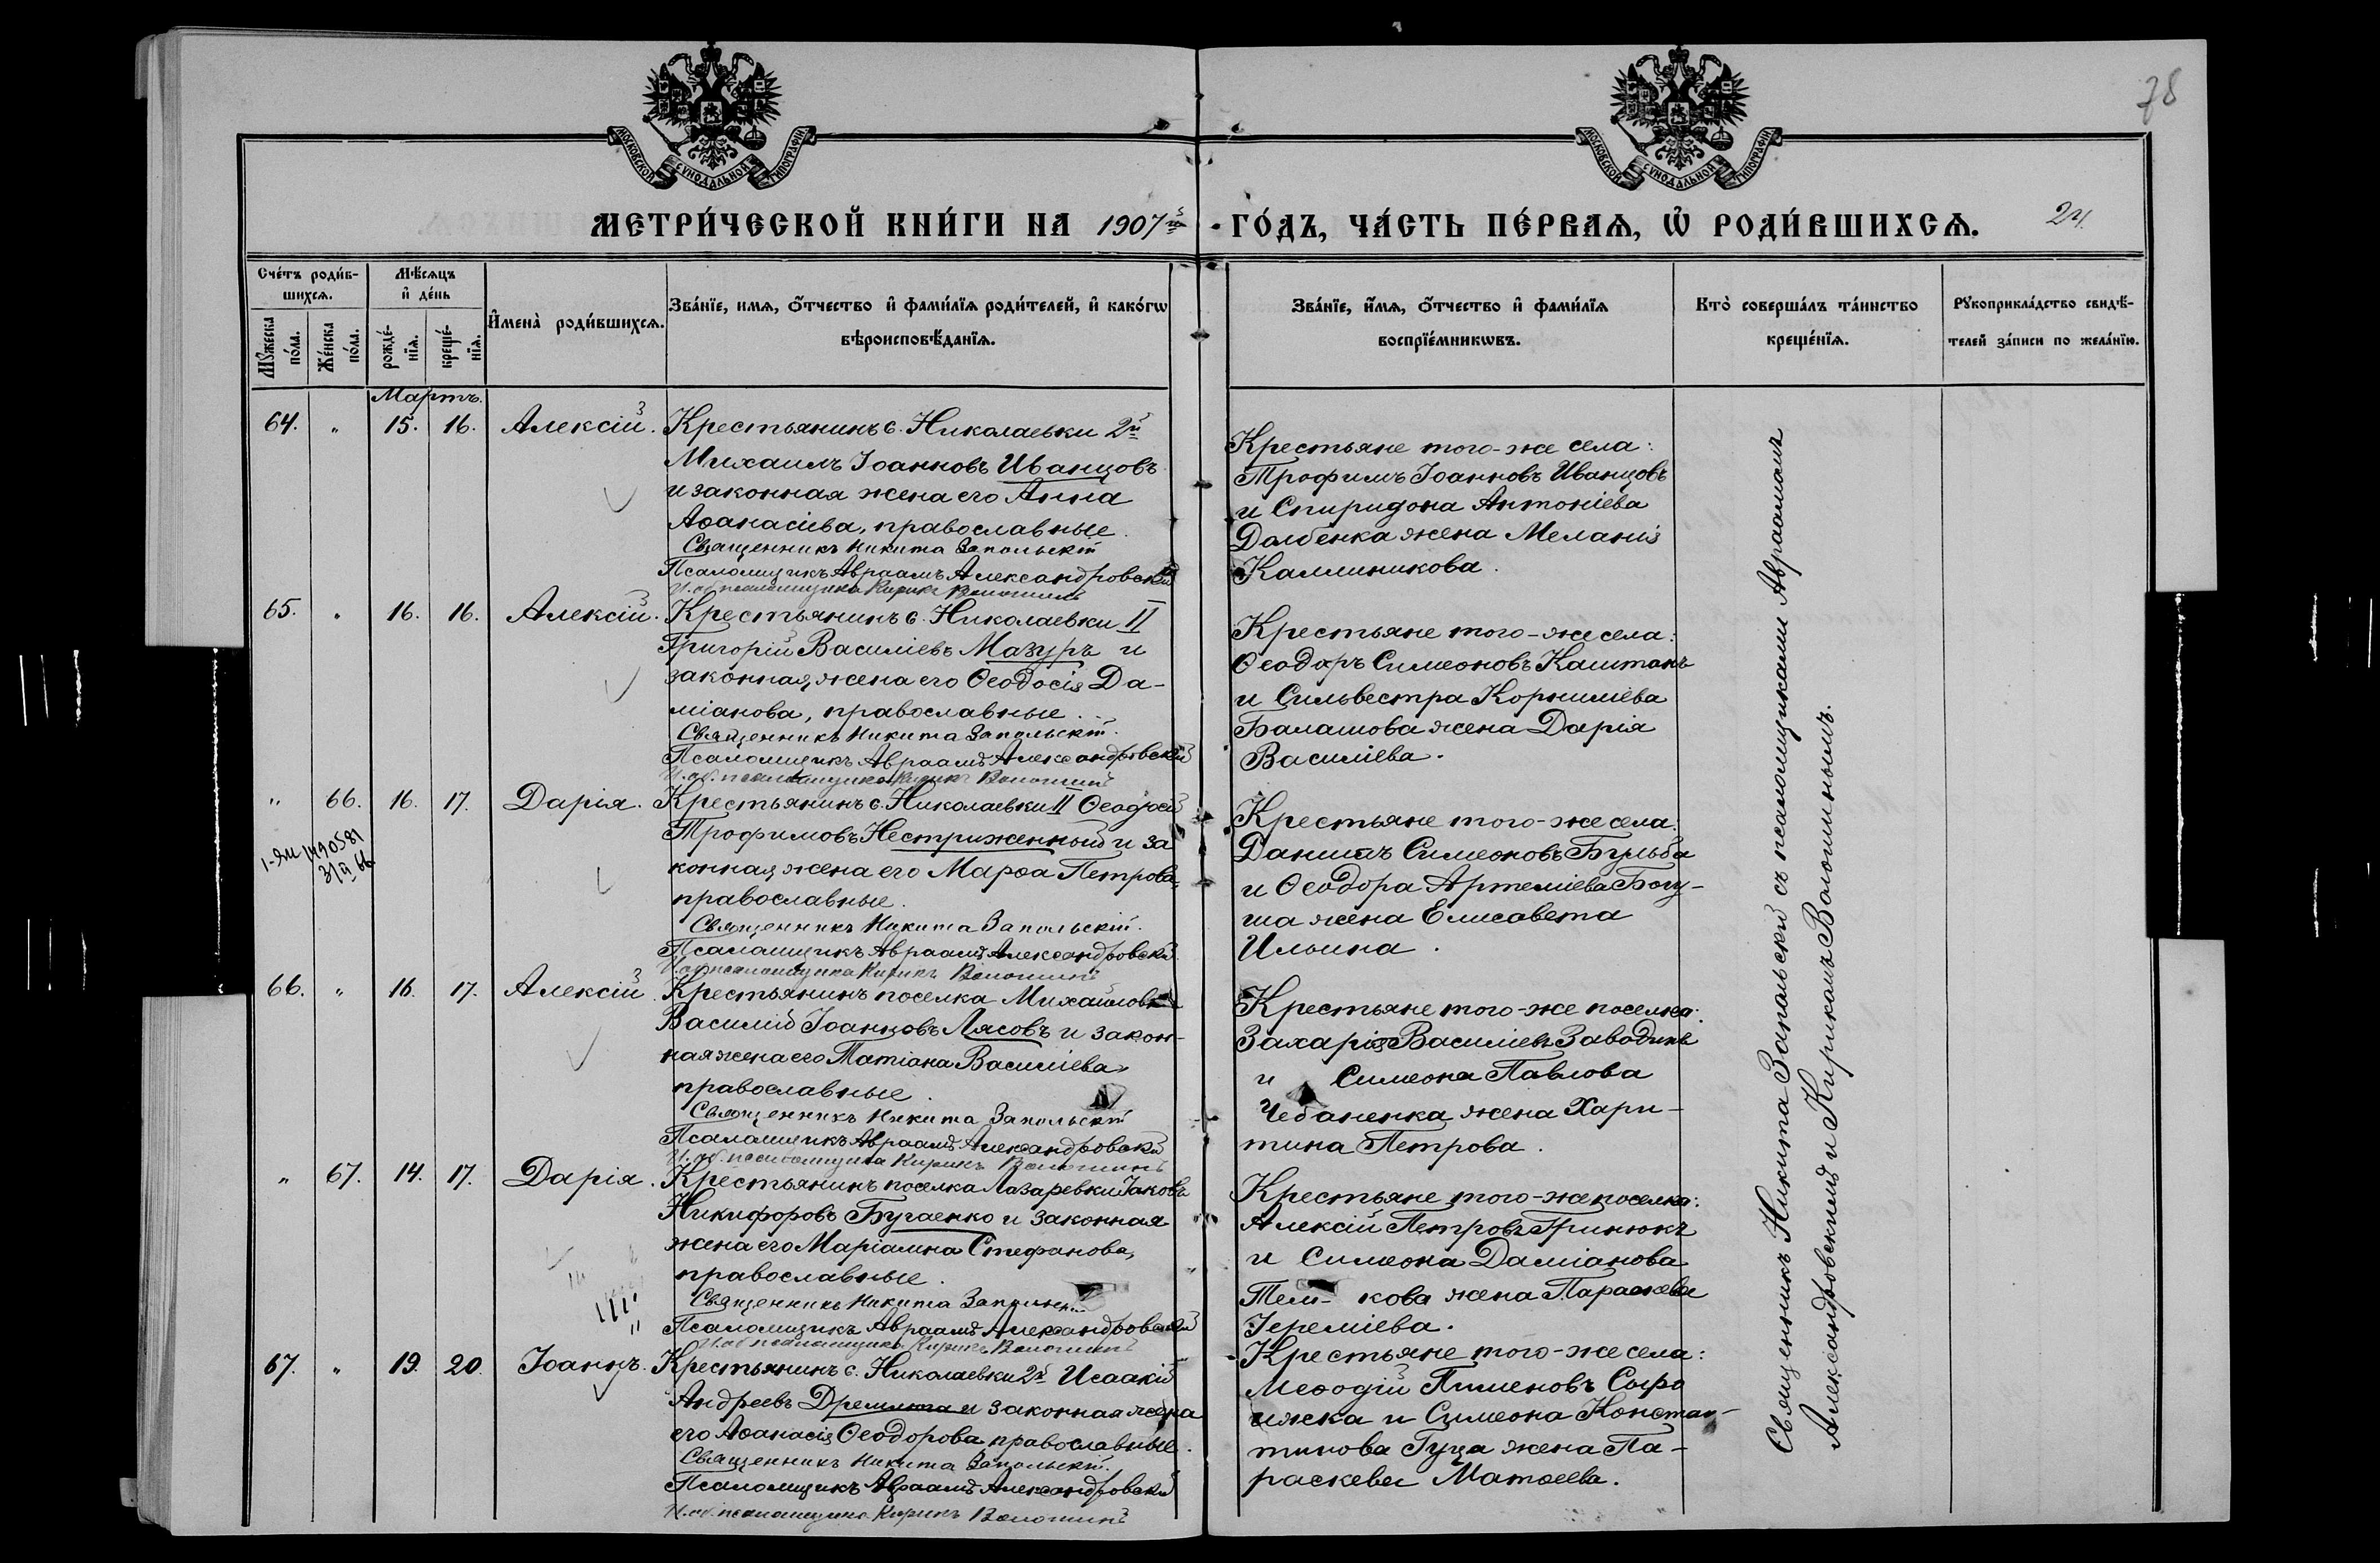 78
МОСКОВСКОЙ СУНОДАЛЬНОЙ ТИПОГРАФІИ
МОСКОВСКОЙ СУНОДАЛЬНОЙ ТИПОГРАФІИ
МЕТРИ́ЧЕСКОЙ КНИ́ГИ НА 1907й
ГО́ДЪ, ЧА́СТЬ ПЕ́РВАѦ, Ѽ РОДИ́ВШИХСѦ.
24.
Сче́тъ роди́в-
шихсѧ.
Мѣ́сѧцъ
и҆ де́нь
Мꙋ́жеска
по́ла.
Же́нска
по́ла.
рожде́-
нїѧ.
креще́-
нїѧ.
И҆мена̀ роди́вшихсѧ.
Зва́нїе, имѧ, ѻ҆́тчество и҆ фами́лїѧ роди́телей, и҆ како́гѡ
вѣроисповѣ́данїѧ.
Зва́нїе, и҆́мѧ, ѻ҆́тчество и҆ фами́лїѧ
воспрїе́мникѡвъ.
Кто̀ соверша́лъ та́инство
креще́нїѧ.
Рꙋкоприкла́дство свидѣ́-
телей за́писи по жела́нїю.
Мартъ.
64. „ 15. 16. Алексій. Крестьянинъ с. Николаевки 2й
Михаилъ Іоанновъ Иванцовъ
и законная жена его Анна
Аѳанасіева, православные.
Священникъ Никита Запольскій
Псаломщикъ Авраамъ Александровскій
И. об. псаломщика Кирикъ Волошинъ
Крестьяне того-же села:
Трофимъ Іоанновъ Иванцовъ
и Спиридона Антоніева
Долбенка жена Меланія
Каллиникова.
65. „ 16. 16. Алексій. Крестьянинъ с. Николаевки II
Григорій Василіевъ Мазуръ и
законная жена его Ѳеодосія Да-
міанова, православные.
Священникъ Никита Запольскій.
Псаломщикъ Авраамъ Александровскій
И. об. псаломщика Кирикъ Волошинъ
Крестьяне того-же села:
Ѳеодоръ Симеоновъ Каштанъ
и Сильвестра Корниліева
Балашова жена Дарія
Василіева.
„ 66. 16. 17. Дарія. Крестьянинъ с. Николаевки II Ѳеодосій
Трофимовъ Нестриженный и за
конная жена его Марѳа Петрова,
православные.
Священникъ Никита Запольскій.
Псаломщикъ Авраамъ Александровскій
И. об. псаломщика Кирикъ Волошинъ
Крестьяне того-же села:
Даніилъ Симеоновъ Бульба
и Ѳеодора Артеміева Богу-
ша жена Елисавета
Ильина.
66. „ 16. 17. Алексій. Крестьянинъ поселка Михайловки
Василій Іоанновъ Лясовъ и закон-
ная жена его Татіана Василіева
православные.
Священникъ Никита Запольскій
Псаломщикъ Авраамъ Александровскій
И. об. псаломщика Кирикъ Волошинъ
Крестьяне того-же поселка:
Захарія Василіевъ Заводинъ
и Симеона Павлова
Чебаненка жена Хари-
тина Петрова.
„ 67. 14. 17. Дарія. Крестьянинъ поселка Лазаревки Іаковъ
Никифоровъ Бугаенко и законная
жена его Маріамна Стефанова,
православные.
Священникъ Никита
Псаломщикъ Авраамъ Александровскій
И. об. псаломщика Кирикъ Волошинъ
Крестьяне того-же поселка:
Алексій Петровъ Гринюкъ
и Симеона Даміанова
кова жена Параскева
Іереміева.
67. „ 19. 20. Іоаннъ. Крестьянинъ с. Николаевки 2й Исаакій
Андреевъ Дремлюга и законная жена
его Аѳанасія Ѳеодорова, православные.
Священникъ Никита Запольскій.
Псаломщикъ Авраамъ Александровскій
И. об. псаломщика Кирикъ Волошинъ
Крестьяне того-же села:
Меѳодій Пименовъ Сыро
ижка и Симеона Констан-
тинова Гуца жена Па-
раскева Матѳеева.
Священникъ Никита Запольскій съ псаломщиками Авраамомъ
Александровскимъ и Кирикомъ Волошинымъ.